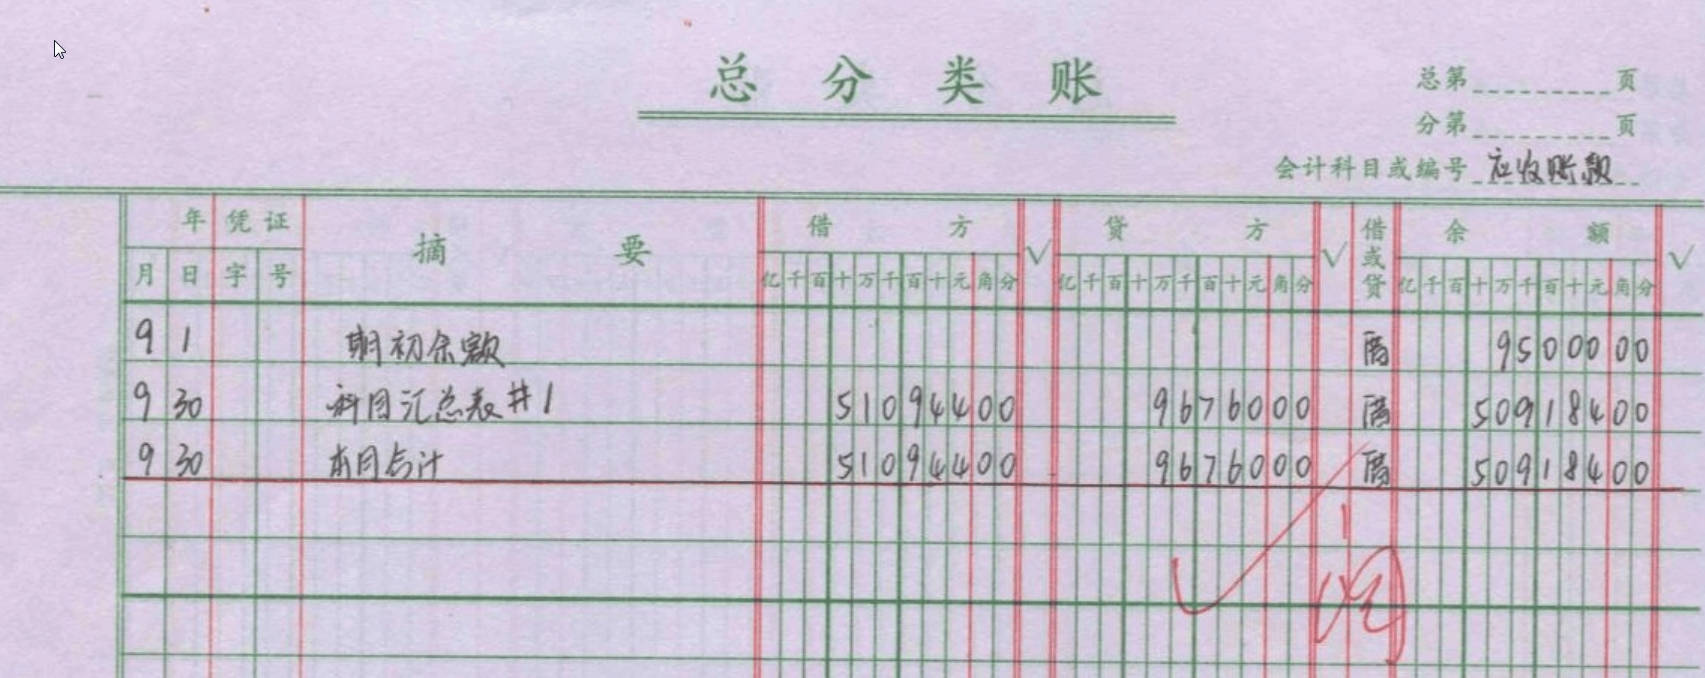 总分类账
总第 页
分第 页
会计科目或编号 应收账款
年 凭证 摘要 借方 √ 贷方 √ 借或贷 余额 √
月 日 字 号 亿千百十万千百十元角分 亿千百十万千百十元角分 亿千百十万千百十元角分
9 1 期初余额 借 9500000
9 30 科目汇总表#1 51094400 9676000 借 50918400
9 30 本月合计 51094400 9676000 借 50918400